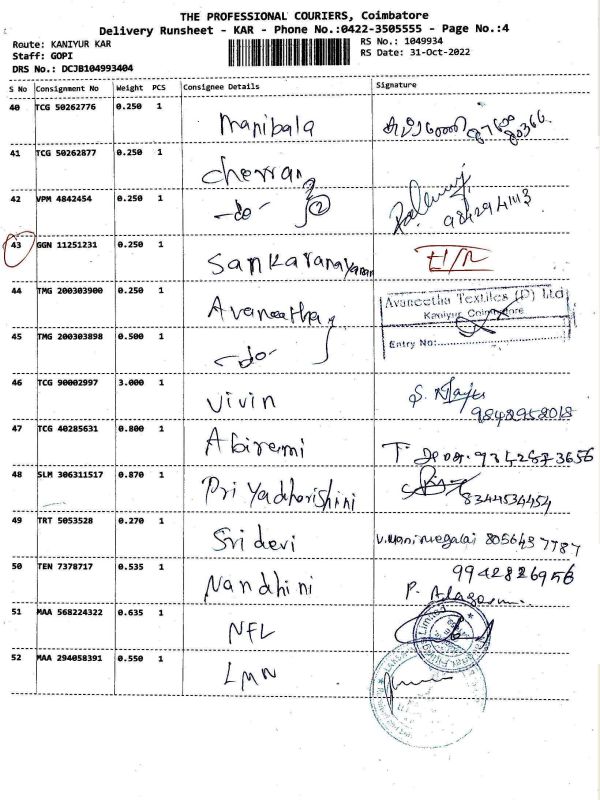 THE PROFESSIONAL COURIERS, Coimbatore
Delivery Runsheet - KAR - Phone No.:0422-3505555 - Page No.:4
Route: KANIYUR KAR
RS No.: 1049934
Staff: GOPI
RS Date: 31-Oct-2022
DRS No.: DCJB104993404
S No Consignment No Weight PCS Consignee Details Signature
40 TCG 50262776 0.250 1 Manibala
41 TCG 50262877 0.250 1 Cherran
42 VPM 4842454 0.250 1 -do- 2
43 GGN 11251231 0.250 1 Sankaranayanan
44 TMG 200303900 0.250 1 Avaneetha
Avaneetha Textiles (P) Ltd
Kaniyur, Coimbatore
Entry No:
45 TMG 200303898 0.500 1 -do-
46 TCG 90002997 3.000 1 Vivin 9842952018
47 TCG 40285631 0.800 1 Abirami
48 SLM 306311517 0.870 1 Priyadharishini 8344534454
49 TRT 5053528 0.270 1 Sridevi V.Manimegalai 8056437787
50 TEN 7378717 0.535 1 Nandhini 9942826956
51 MAA 568224322 0.635 1 NFL
52 MAA 294058391 0.550 1 LMN